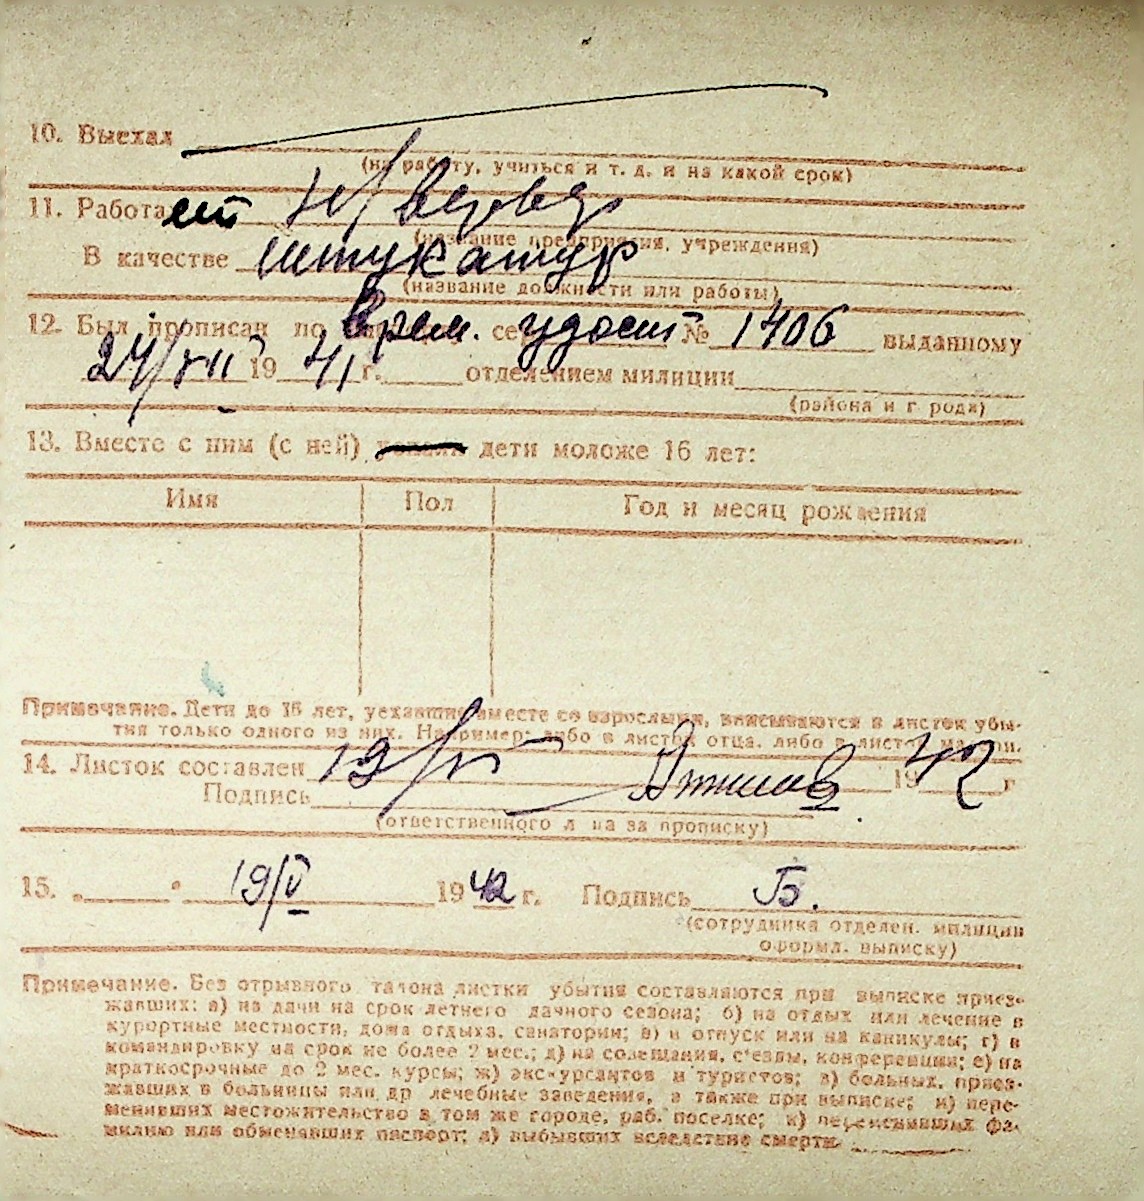 10. Выехал
(на работу, учиться и т. д. и на какой срок)
11. Работает
(название предприятия, учреждения)
В качестве штукатур
(название должности или работы)
12. Был прописан по врем. удост № 1406 выданному
24/VII 19 41 г. отделением милиции
(района и города)
13. Вместе с ним (с ней) дети моложе 16 лет:
Имя Пол Год и месяц рождения
Примечание. Дети до 16 лет, уехавшие вместе со взрослыми, вписываются в листок убы-
тия только одного из них. Например: либо в листок отца, либо в листок
14. Листок составлен 19/V 19 42 г
Подпись
(ответственного лица за прописку)
15. " " 19/V 19 42 г. Подпись Б.
(сотрудника отделен. милиции
оформл. выписку)
Примечание. Без отрывного талона листки убытия составляются при выписке приез-
жавших: а) на дачи на срок летнего дачного сезона; б) на отдых или лечение в
курортные местности, дома отдыха, санатории; в) в отпуск или на каникулы; г) в
командировку на срок не более 2 мес.; д) на совещания, с'езды, конференции; е) на
краткосрочные до 2 мес. курсы; ж) экскурсантов и туристов; з) больных, приез-
жавших в больницы или др лечебные заведения, а также при выписке; и) пере-
менивших местожительство в том же городе, раб. поселке; к) переменивших фа-
милию или обменявших паспорт; л) выбывших вследствие смерти.